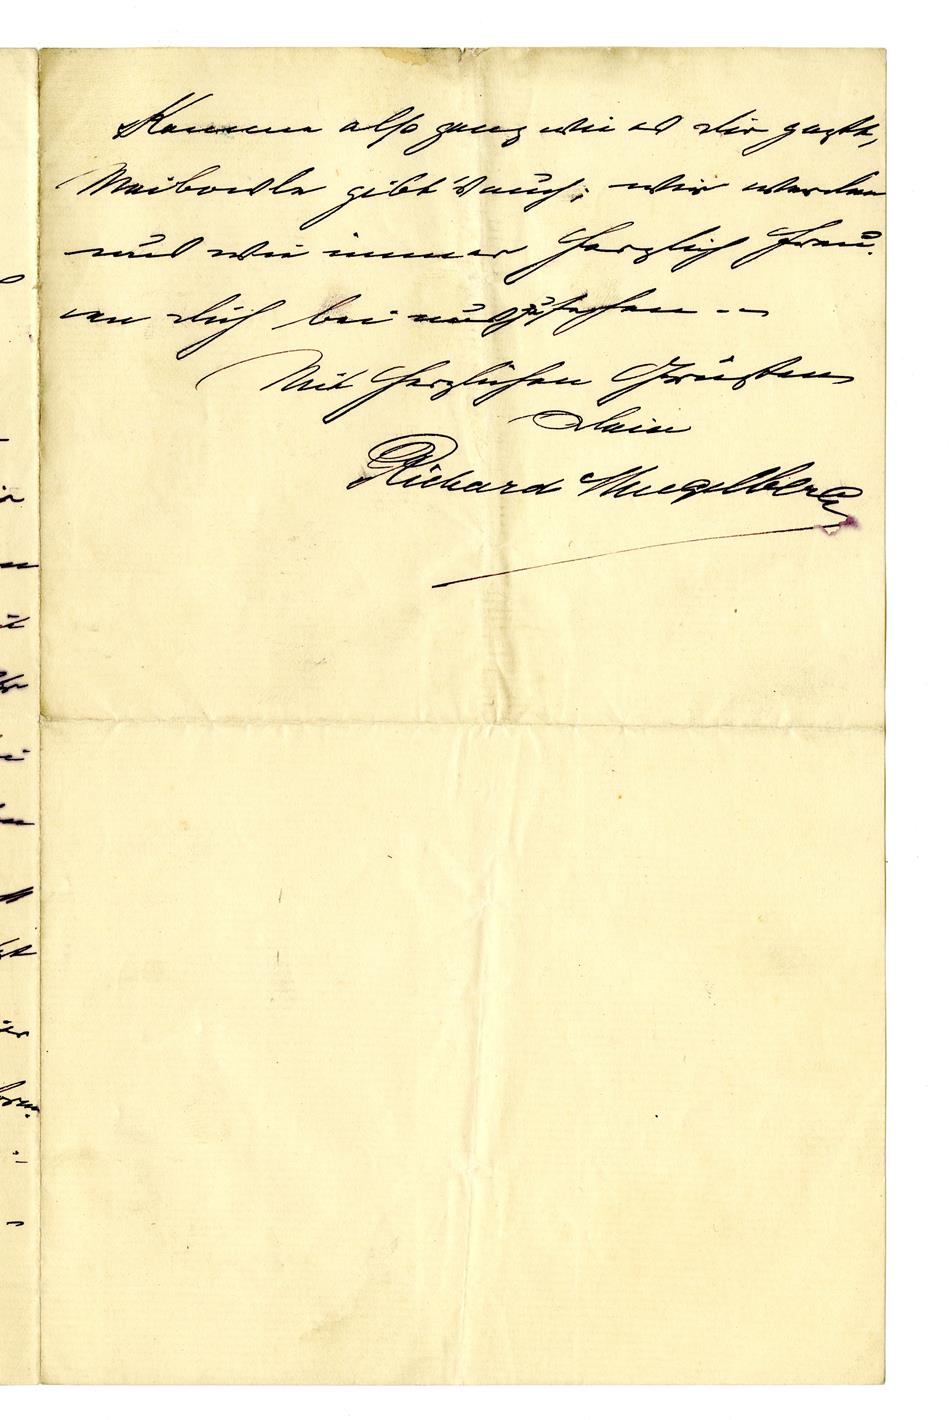 Komme also ganz wie es dir paßt,
Maibowle gibt's auch; wir werden
uns wie immer herzlich freu-
en dich bei uns zu sehen --
Mit herzlichen Grüßen
Dein
Richard